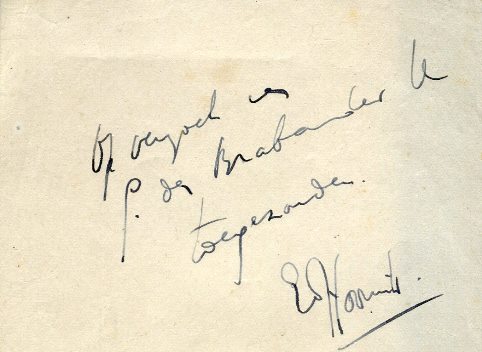 Op verzoek van
P. den Brabander U
toegezonden.
Ed Hoornik.